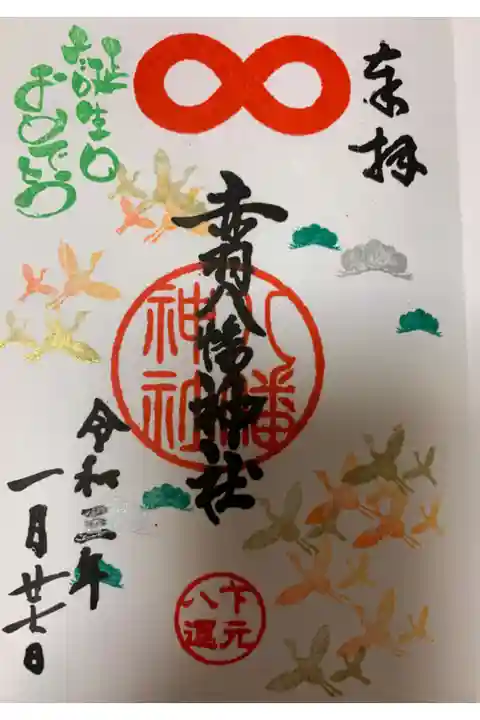 奉拝
赤羽八幡神社
八幡
神社
令和三年
一月廿七日
お誕生日
おめでとう